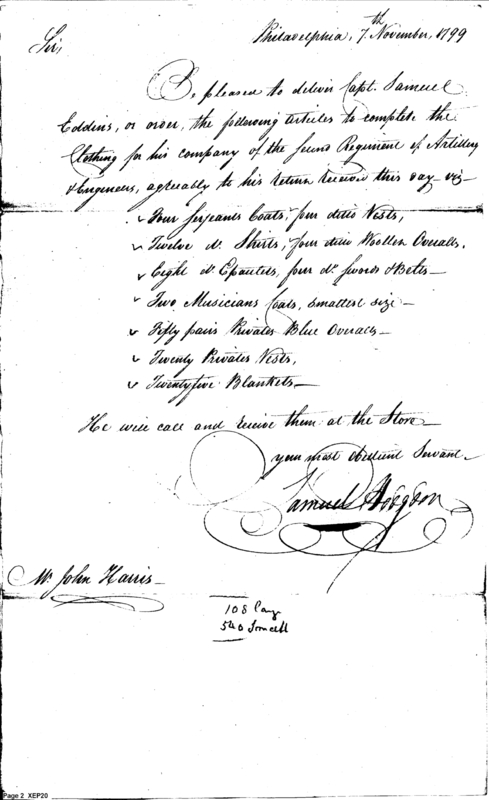 Philadelphia, 7th November, 1799
Sir,
Be pleased to deliver Capt. Samuel
Eddins, or order, the following articles to complete the
Clothing for his company of the second Regiment of Artillery
& Engineers, agreeably to his return received this day viz
Four Serjeants Coats, four ditto Vests,
Twelve do. Shirts, four ditto Woollen Overalls,
Eight do. Epaulets, four do. Swords & Belts—
Two Musicians Coats, smallest size—
Fifty pairs Privates Blue Overalls—
Twenty Privates Vests,
Twentyfive Blankets—
He will call and receive them at the Store—
your most obedient Servant—
Samuel Hodgdon
Mr. John Harris—
108
540
Page 2 XEP20